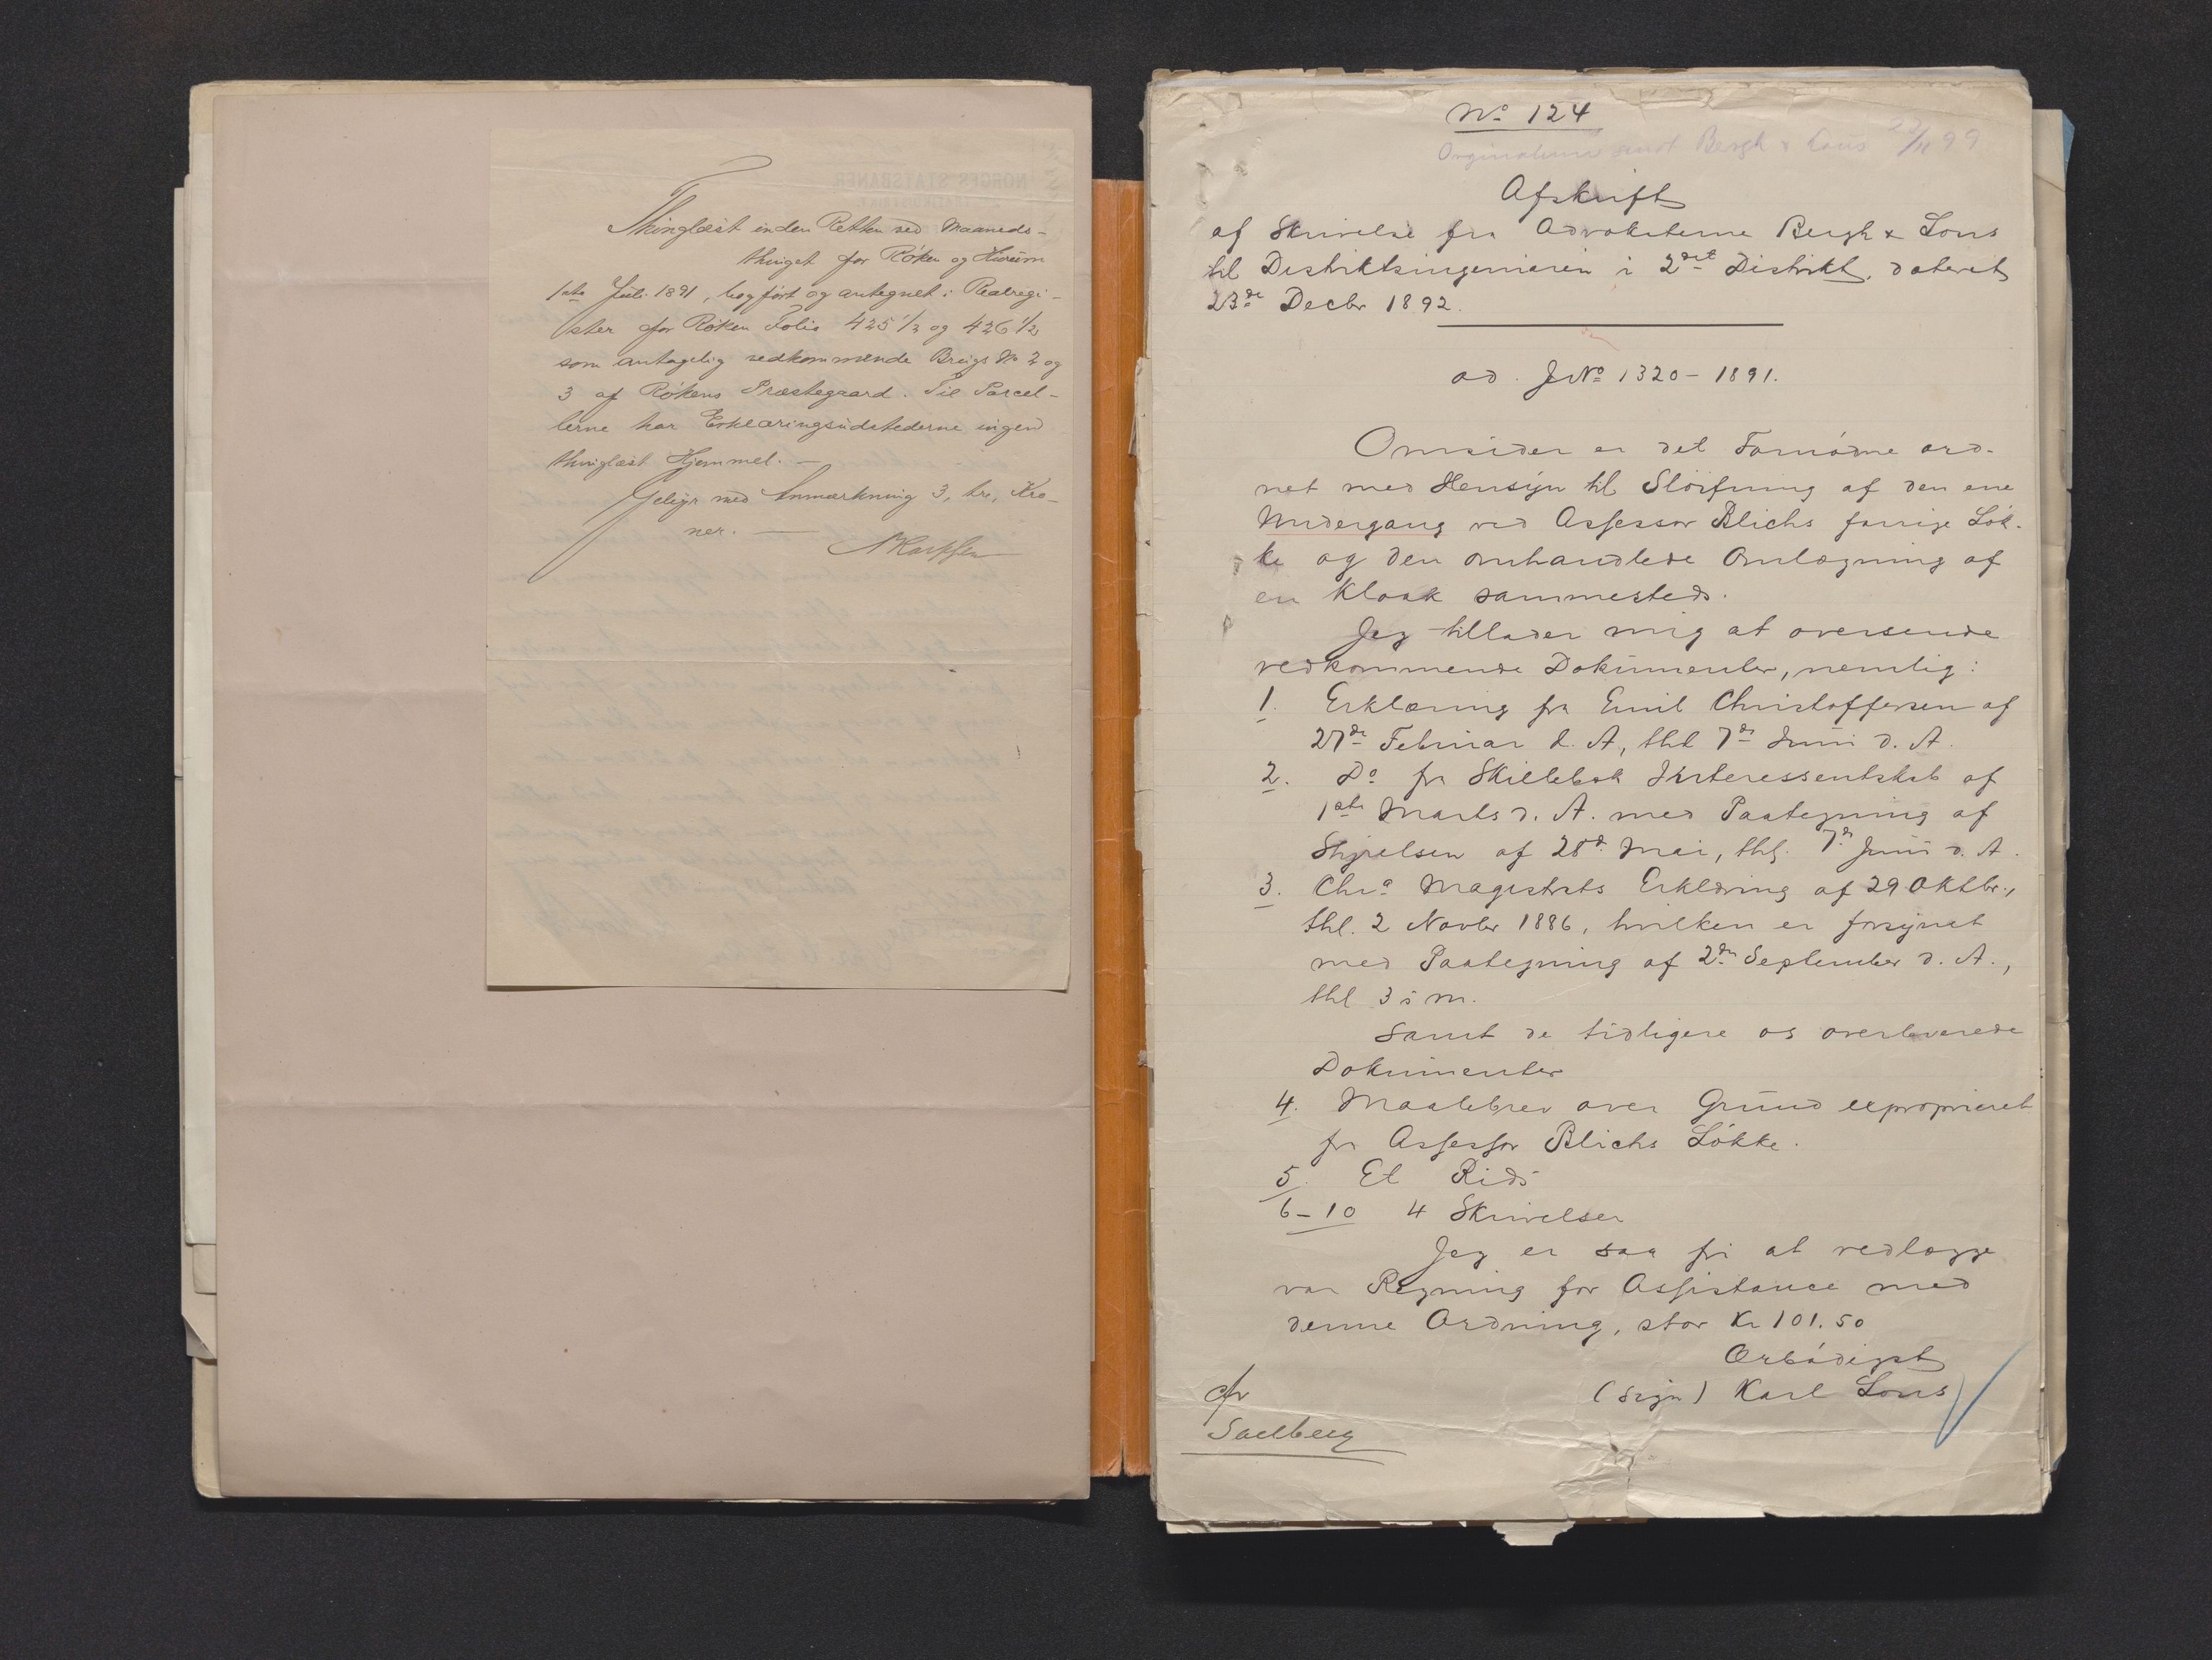 Thinglæst inden Retten ved Maaneds-
thinget for Røken og Hurum
1ste Juli 1891, bogført og antegnet i Realregi-
ster for Røken Folio 425 1/2 og 426 1/2
som antagelig vedkommende Brugs No 2 og
3 af Røkens Præstegaard. Til Parcel-
lerne har Erklæringsudstederne ingen
thinglæst Hjemmel. —
Gebyr med Anmærkning 3, tre, Kro-
ner. —
No 124
Originalerne sendt Bergh & Lous /11 99
Afskrift
af Skrivelse fra Advokaterne Bergh & Lous
til Distriktsingeniøren i 2det Distrikt, dateret
23de Decbr 1892.
ad. JNo 1320 - 1891.
Omsider er det Fornødne ord-
net med Hensyn til Sløifning af den ene
Undergang ved Assessor Blichs forrige Løk-
ke og den omhandlede Omlægning af
en Kloak sammesteds.
Jeg tillader mig at oversende
vedkommende Dokumenter, nemlig:
1. Erklæring fra Emil Christoffersen af
27de Februar d. A, thl 7de Juni d. A.
2. Do fra Skillebæk Interessentskab af
1ste Marts d. A. med Paategning af
Styrelsen af 28d Mai, thl. 7de Juni d. A.
3. Chra Magistrats Erklæring af 29 Oktbr.,
thl. 2 Novbr 1886, hvilken er forsynet
med Paategning af 2den September d. A.,
thl 3 s m.
samt de tidligere os overleverede
Dokumenter
4. Maalebrev over Grund exproprieret
fra Assessor Blichs Løkke.
5. Et Rids
6-10 4 Skrivelser
Jeg er saa fri at vedlægge
vor Regning for Assistance med
denne Ordning, stor Kr 101.50
Ærbødigst
(sign) Karl Lous
cfr
Saelberg